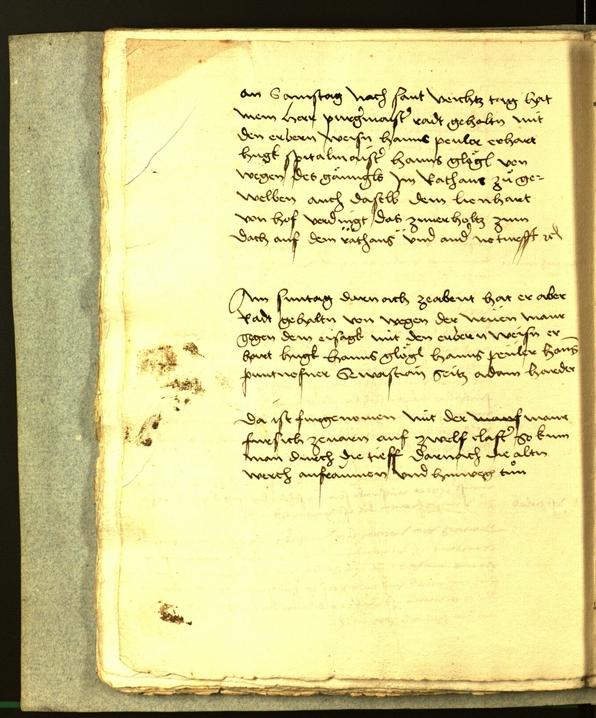 an Samstag nach sant veichtz tag hat
mein herr purgermaister radt gehaltn mit
den erbern weisn hanns peuler erhart
hugk spitalmaister hanns glögl von
wegen des gänngls Im Rathaus zu ge-
welben auch daselb dem lienhart
von hof verdingt das zimerholtz zum
dach auf dem rathaus und ander notturfft
Am suntag darnach zeabent hat er aber
Radt gehaltn von wegen der neuen maur
gegen dem eisagk mit den erbern weisn er
hart hugk hanns glögl hanns peuler hanns
puntnofner Sewastian Seitz adam harder
Da ist furgenomen mit der maur
fursich zenarn auf zwelf claffter So kum
man durch die tieff darnach die altn
werch aufraumen und hinweg tun